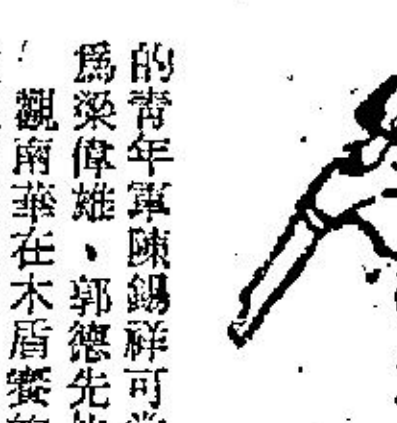 的青年軍陳錫祥可
為梁偉雄、郭德先
觀南華在木盾賽